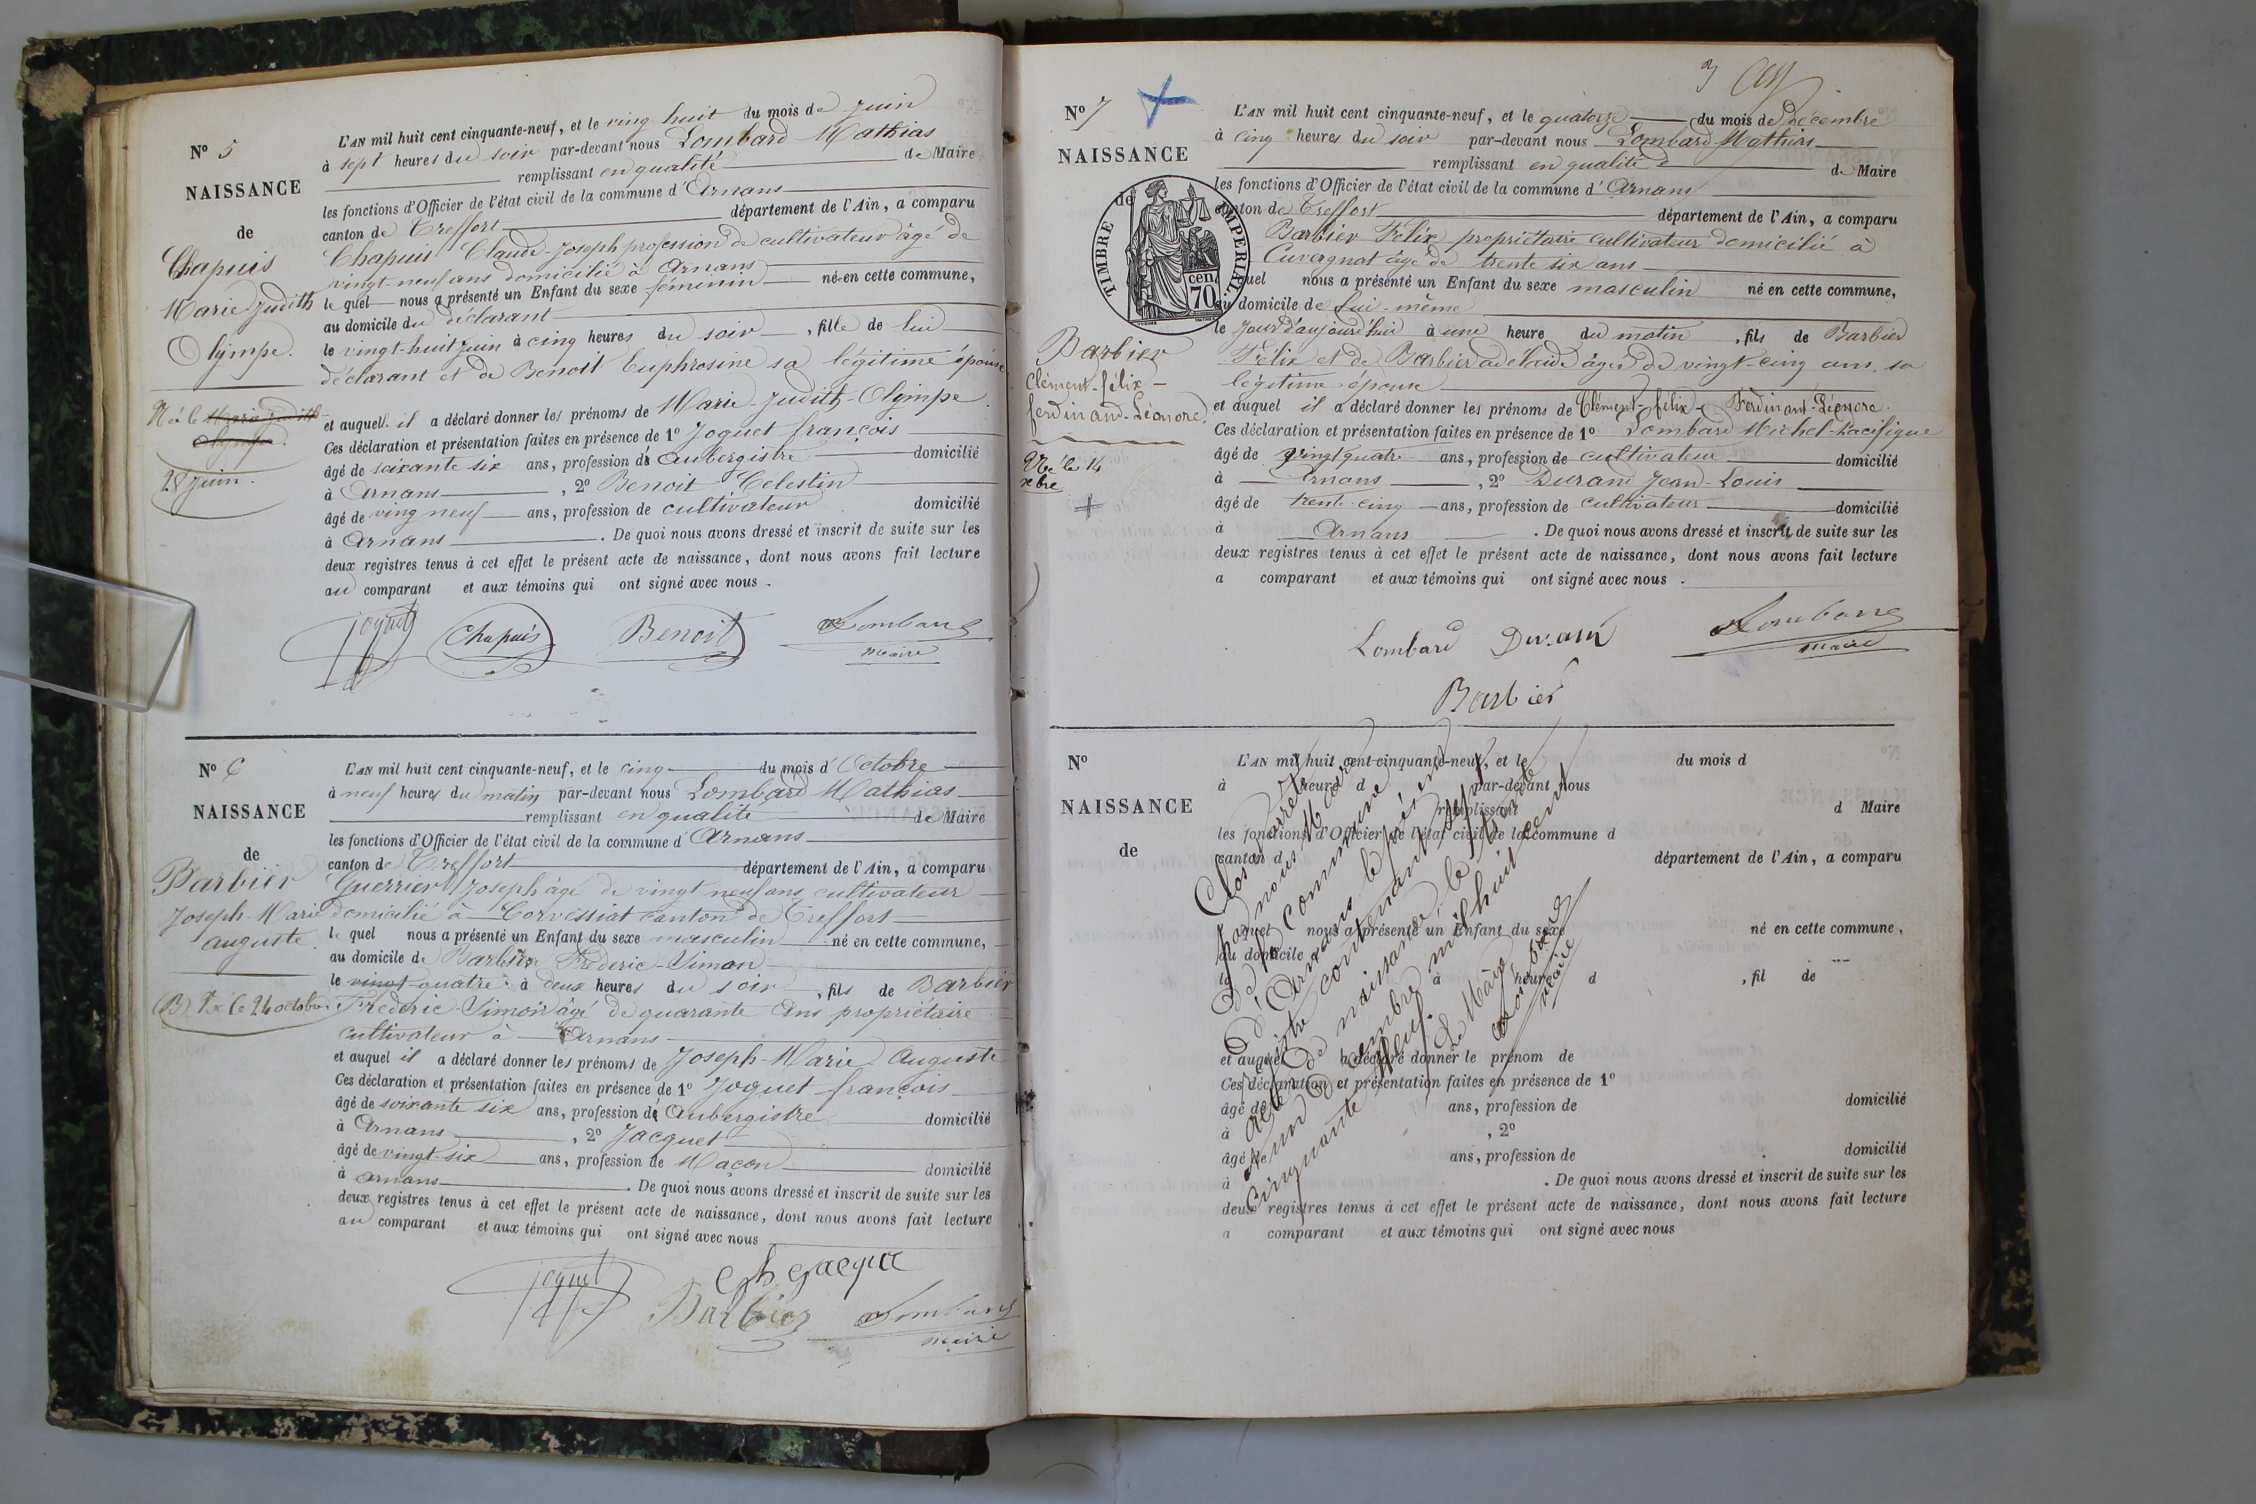 Nº 5
NAISSANCE
de
Chapuis
Marie Judith
Olympe.
Né le Marie Judith
Olympe.
28 juin.
L'AN mil huit cent cinquante-neuf, et le ving huit du mois de Juin
à sept heures du soir par-devant nous Lombard Mathias
remplissant en qualité de Maire
les fonctions d'Officier de l'état civil de la commune d'Arnans
canton de Treffort département de l'Ain, a comparu
Chapuis Claude-Joseph profession de cultivateur âgé de
vingt-neuf ans domicilié à Arnans
le quel nous a présenté un Enfant du sexe féminin né en cette commune,
au domicile du déclarant
le vingt-huit juin à cinq heures du soir, fille de lui
déclarant et de Benoit Euphrosine sa légitime épouse
et auquel il a déclaré donner les prénoms de Marie-Judith-Olympe
Ces déclaration et présentation faites en présence de 1º Joguet françois
âgé de soixante six ans, profession de Aubergistre domicilié
à Arnans, 2º Benoit Celestin
âgé de ving neuf ans, profession de cultivateur domicilié
à Arnans. De quoi nous avons dressé et inscrit de suite sur les
deux registres tenus à cet effet le présent acte de naissance, dont nous avons fait lecture
au comparant et aux témoins qui ont signé avec nous.
Joguet Chapuis Benoit Lombard
maire
Nº 6
NAISSANCE
de
Barbier
Joseph-Marie
auguste.
(B) Né le 24 octobre
L'AN mil huit cent cinquante-neuf, et le cinq du mois d'Octobre
à neuf heures du matin par-devant nous Lombard Mathias
remplissant en qualité de Maire
les fonctions d'Officier de l'état civil de la commune d'Arnans
canton de Treffort département de l'Ain, a comparu
Guerrier Joseph âgé de vingt neuf ans cultivateur
domicilié à Corvéssiat canton de Treffort
le quel nous a présenté un Enfant du sexe masculin né en cette commune,
au domicile de Barbier Fréderic-Simon
le vingt-quatre à deux heures du soir, fils de Barbier
Fréderic-Simon âgé de quarante ans propriétaire
cultivateur à Arnans
et auquel il a déclaré donner les prénoms de Joseph-Marie Auguste
Ces déclaration et présentation faites en présence de 1º Joguet françois
âgé de soixante six ans, profession de Aubergistre domicilié
à Arnans, 2º Jacquet
âgé de vingt-six ans, profession de Maçon domicilié
à arnans. De quoi nous avons dressé et inscrit de suite sur les
deux registres tenus à cet effet le présent acte de naissance, dont nous avons fait lecture
au comparant et aux témoins qui ont signé avec nous
Joguet
Barbier Lombard
maire
3
Nº 7
NAISSANCE
de
TIMBRE IMPERIAL
cen.
70
Barbier
Clément-félix-
ferdinand-Léonore
Né le 14
xbre
L'AN mil huit cent cinquante-neuf, et le quatorze du mois de décembre
à cinq heures du soir par-devant nous Lombard Mathias
remplissant en qualité de Maire
les fonctions d'Officier de l'état civil de la commune d'Arnans
canton de Treffort département de l'Ain, a comparu
Barbier Félix propriétaire cultivateur domicilié à
Cuvergnat âgé de trente six ans
quel nous a présenté un Enfant du sexe masculin né en cette commune,
au domicile de lui-même
le jour d'aujourd'hui à une heure du matin, fils de Barbier
Félix et de Barbier adelaide âgée de vingt-cinq ans sa
légitime épouse
et auquel il a déclaré donner les prénoms de Clément-félix-Ferdinant-Léonore.
Ces déclaration et présentation faites en présence de 1º Lombard Michel-Pacifique
âgé de vingt quatre ans, profession de cultivateur domicilié
à Arnans, 2º Durand Jean-Louis
âgé de trent-cinq ans, profession de cultivateur domicilié
à Arnans. De quoi nous avons dressé et inscrit de suite sur les
deux registres tenus à cet effet le présent acte de naissance, dont nous avons fait lecture
a comparant et aux témoins qui ont signé avec nous.
Lombard Durand Lombard
maire
Barbier
Nº
NAISSANCE
de
L'AN mil huit cent cinquante-neuf, et le du mois d
à heures d par-devant nous
remplissant d Maire
les fonctions d'Officier de l'état civil de la commune d
canton d département de l'Ain, a comparu
quel nous a présenté un Enfant du sexe né en cette commune,
au domicile d
le à heure d, fil de
et auquel a déclaré donner le prénom de
Ces déclaration et présentation faites en présence de 1º
âgé de ans, profession de domicilié
à, 2º
âgé de ans, profession de domicilié
à. De quoi nous avons dressé et inscrit de suite sur les
deux registres tenus à cet effet le présent acte de naissance, dont nous avons fait lecture
a comparant et aux témoins qui ont signé avec nous
Clos et arrêté
par nous Maire
de la commune
d'Arnans le présent
registre contenant sept
actes de naissance, le trente
un décembre mil huit cent
cinquante neuf.
Le Maire
Lombard
maire